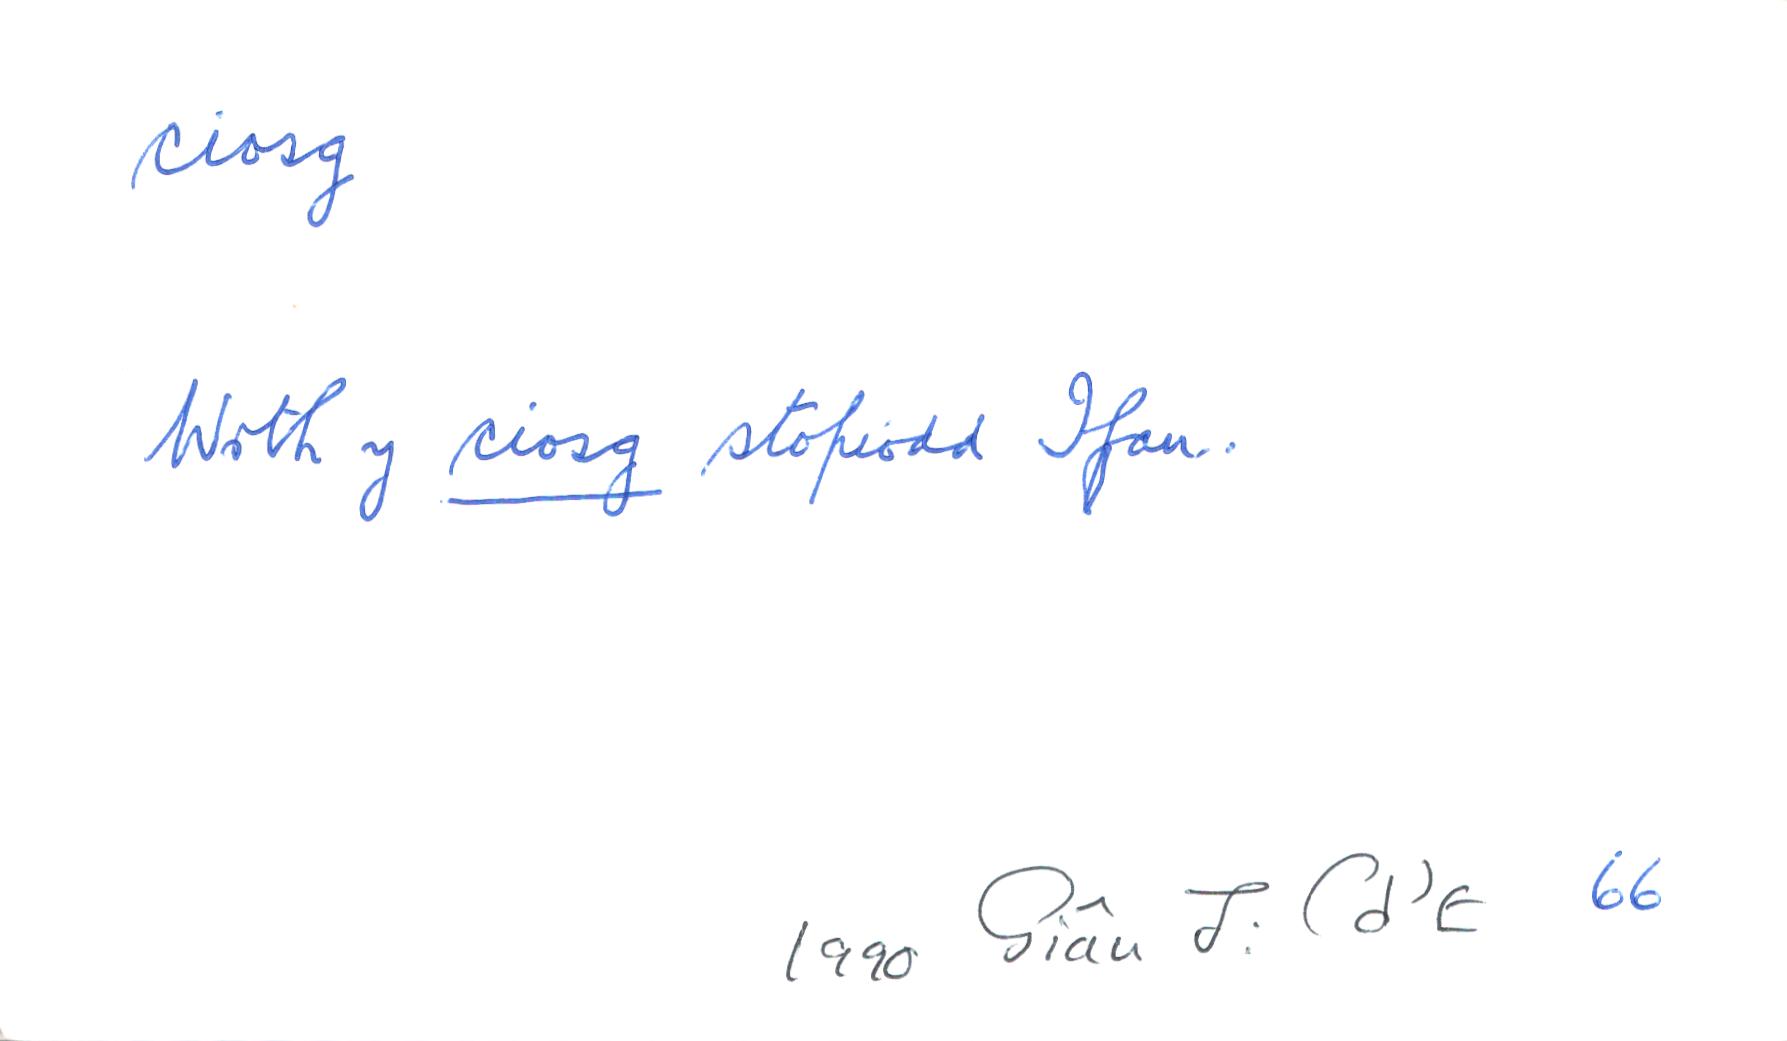 ciosg
Wrth y ciosg stopiodd Ifan..
1990 Siân T: Cd'E 66